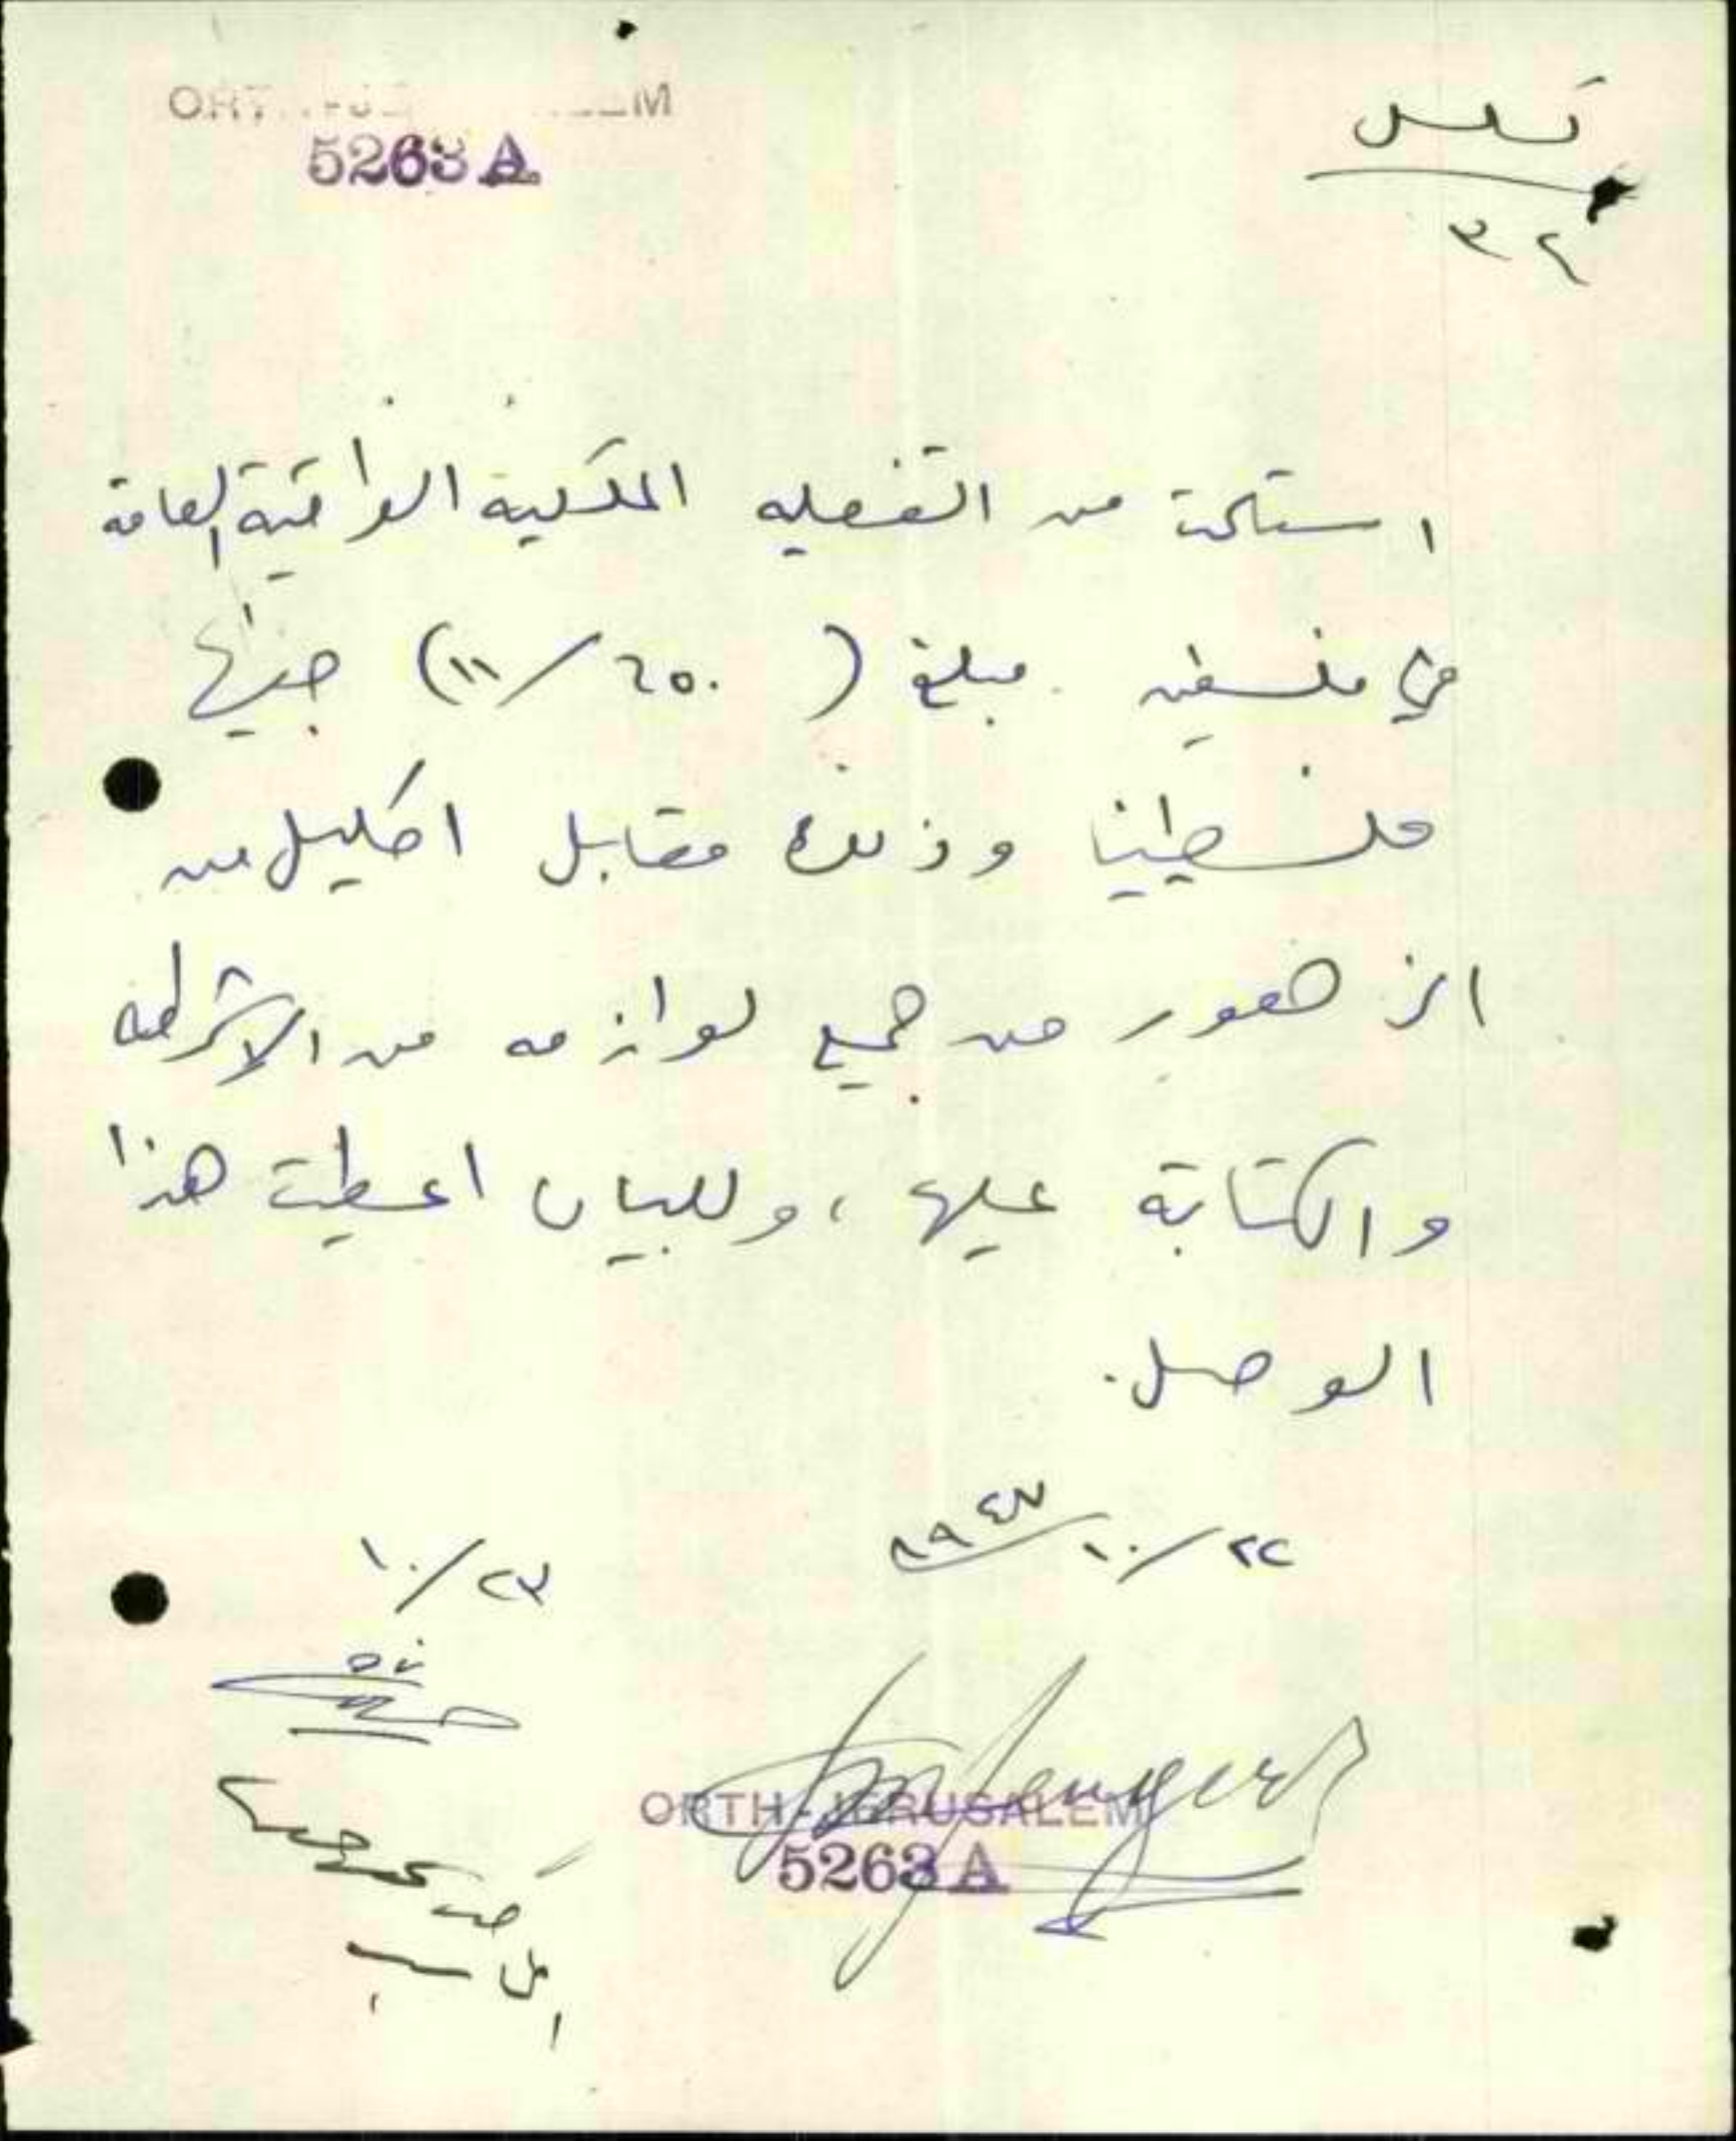 5263 A
٣٢
استلمت من القنصليه الملكية العراقية العامة
في فلسطين مبلغ ( ٢٥٠/١١ ) جنيها
فلسطينيا وذلك مقابل اكليل من
الزهور مع جميع لوازمه من الاشرطه
والكتابة عليها ، وللبيان اعطيت هذا
الوصل.
٢٢/١٠/١٩٤٧
٢٣/١٠
ORTH-JERUSALEM
5263 A